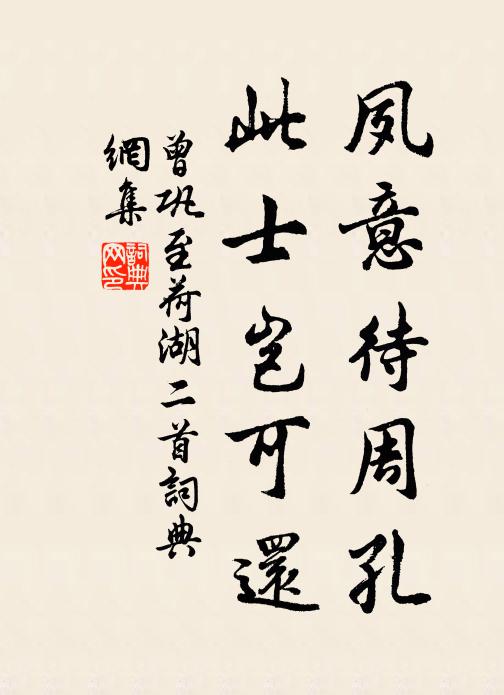 夙意待周孔
此士岂可還
曾巩至荷湖二首詞典
網集
詞典
网印